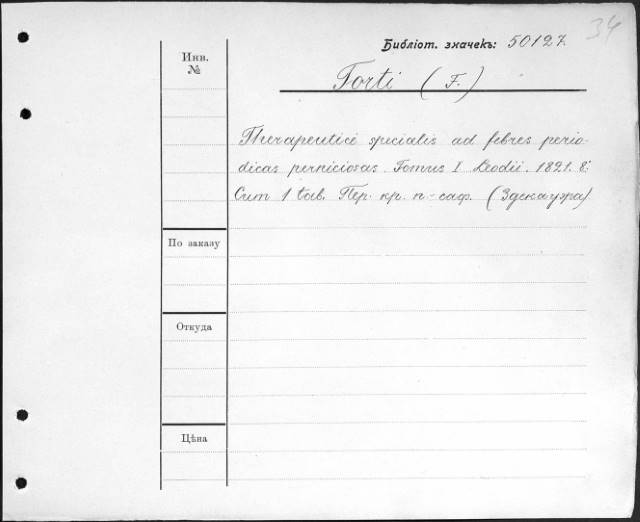 34
Библіот. значекъ: 50127.
Инв.
№
Torti (F.)
Therapeutice specialis ad febres perio-
dicas perniciosas. Tomus I Leodii. 1821. 8º.
Cum 1 tab. Пер. кр. п-саф. (Здекауэра)
По заказу
Откуда
Цѣна